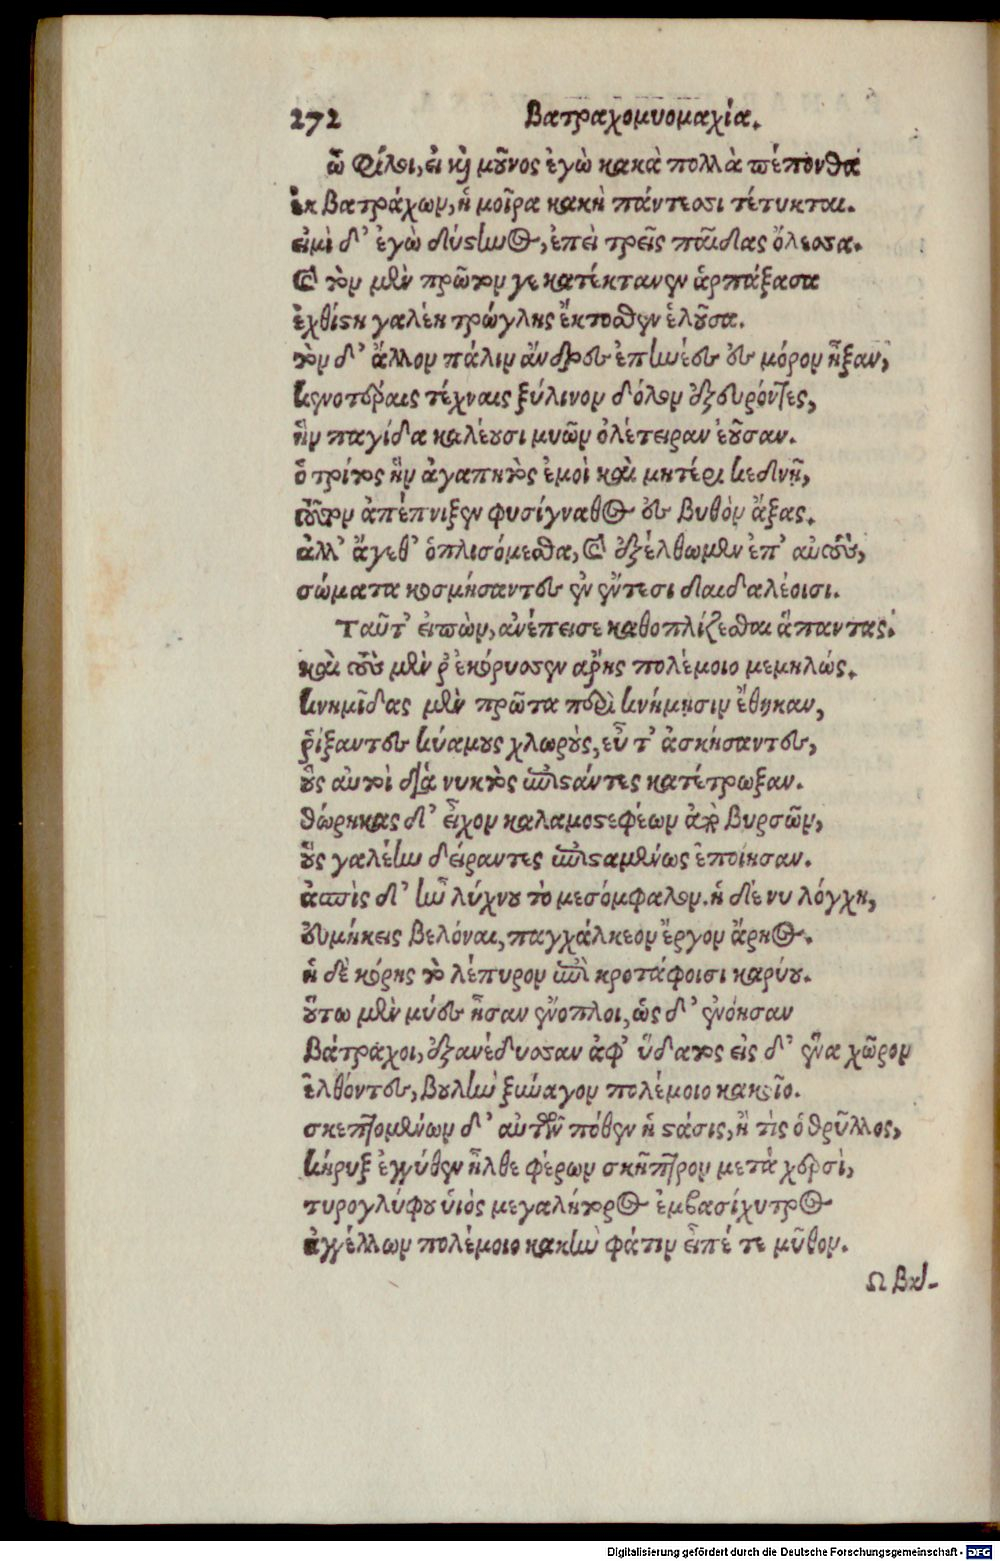 272 Βατραχομυομαχία.
ὦ Φίλοι, εἰ καὶ μοῦνος ἐγὼ κακὰ πολλὰ πέπονθα
ἐκ Βατράχων, ἡ μοῖρα κακὴ πάντεσσι τέτυκται.
εἰμὶ δ' ἐγὼ δύστηνος, ἐπεὶ τρεῖς παῖδας ὄλεσσα.
καὶ τὸν μὲν πρῶτον γε κατέκτανεν ἁρπάξασα
ἐχθίστη γαλέη τρώγλης ἔκτοσθεν ἑλοῦσα.
τὸν δ' ἄλλον πάλιν ἄνδρες ἀπηνέες ἐς μόρον ἦξαν,
καινοτέραις τέχναις ξύλινον δόλον ἐξευρόντες,
ἣν παγίδα καλέουσι μυῶν ὀλέτειραν ἐοῦσαν.
ὁ τρίτος ἦν ἀγαπητὸς ἐμοὶ καὶ μητέρι κεδνῇ,
τοῦτον ἀπέπνιξεν φυσίγναθος ἐς βυθὸν ἄξας.
ἀλλ' ἄγεθ' ὁπλισόμεσθα, καὶ ἐξέλθωμεν ἐπ' αὐτοὺς,
σώματα κοσμήσαντες ἐν ἔντεσι δαιδαλέοισι.
Ταῦτ' εἰπὼν, ἀνέπεισε καθοπλίζεσθαι ἅπαντας.
καὶ τοὺς μὲν ῥ' ἐκόρυσσεν ἄρης πολέμοιο μεμηλώς.
κνημῖδας μὲν πρῶτα περὶ κνήμῃσιν ἔθηκαν,
ῥίξαντες κυάμους χλωροὺς, εὖ τ' ἀσκήσαντες,
οὓς αὐτοὶ διὰ νυκτὸς ἐπιστάντες κατέτρωξαν.
θώρηκας δ' εἶχον καλαμοστεφέων ἀπὸ βυρσῶν,
οὓς γαλέην δείραντες ἐπισταμένως ἐποίησαν.
ἀσπὶς δ' ἦν λύχνου τὸ μεσόμφαλον. ἡ δέ νυ λόγχη,
εὐμήκεις βελόναι, παγχάλκεον ἔργον ἄρηος.
ἡ δὲ κόρης τὸ λέπυρον ἐπὶ κροτάφοισι καρύου.
οὕτω μὲν μύες ἦσαν ἔνοπλοι, ὡς δ' ἐνόησαν
Βάτραχοι, ἐξανέδυσαν ἀφ' ὕδατος εἰς δ' ἕνα χῶρον
ἐλθόντες, βουλὴν ξύναγον πολέμοιο κακοῖο.
σκεπτομένων δ' αὐτῶν πόθεν ἡ στάσις, ἢ τίς ὁ θρῦλλος,
κῆρυξ ἐγγύθεν ἦλθε φέρων σκῆπτρον μετὰ χερσὶ,
τυρογλύφου υἱὸς μεγαλήτορος ἐμβασίχυτρος
ἀγγέλλων πολέμοιο κακὴν φάτιν εἶπέ τε μῦθον.
Ω βά-
Digitalisierung gefördert durch die Deutsche Forschungsgemeinschaft - DFG